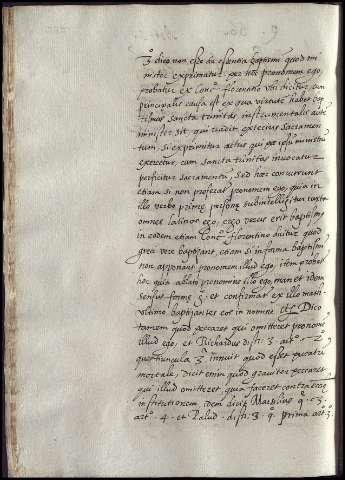 3° dico non esse de essentia baptismi quod mi
nister exprimatur per hoc pronomen ego
probatur ex Conc° florentino ubi dicitur cum
principalis causa est ex qua virtutem habet bap
tismus sancta trinitas instrumentalis aute
minister sit qui tradit exterius sacramen
tum, si exprimitur actus qui per ipsum ministru
exercetur, cum sanctae trinitatis invocatione
perficitur sacramentu, sed haec concurrunt
etiam si non proferat pronomen ego, quia in
illo verbo primae personae subintelligitur iuxta
omnes latinos ego, ergo verus erit baptismus
in eodem etiam Conc° florentino dicitur quod
graeci vere baptizant etiam si in forma baptismi
non apponant pronomen illud ego, item probat
hoc quia ablato pronomine illo ego, manet idem
sensus formae
et confirmat ex illo math
ultimo baptizantes eos in nomine
Dico
tamen quod peccaret qui omitteret pronome
illud ego, et Richardus disti. 3. art° 2°
quaestiuncula 3a innuit quod esset peccatu
mortale, dicit enim quod graviter peccaret
qui illud omitteret quia faceret contra
institutionem idem dicit Marsilius q. 3.
art° 4. et Palud. disti. 3. q. prima art° 3.